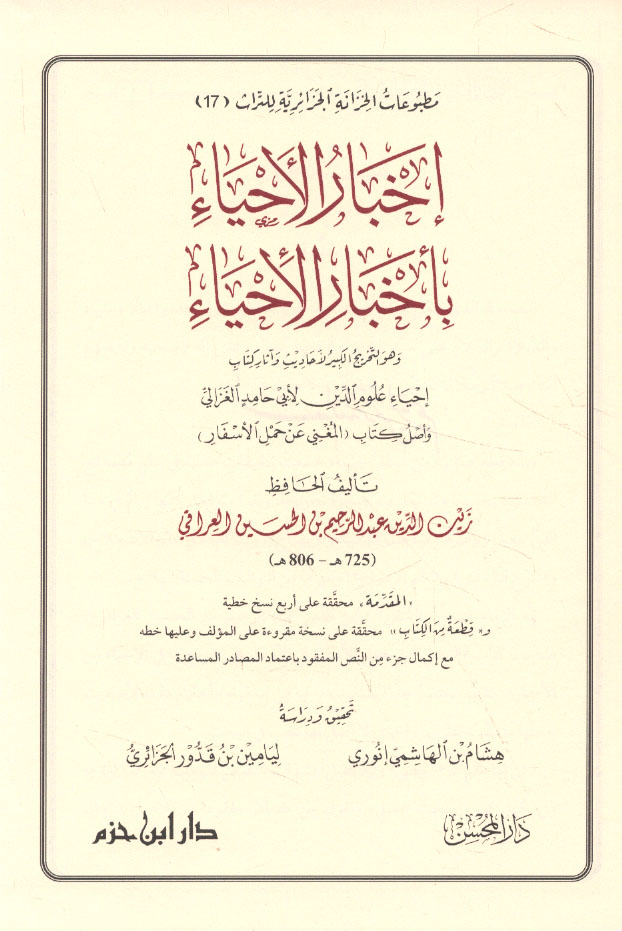 مَطبُوعَاتُ الخِزَانَةِ الجَزَائِرِيَّةِ لِلتُّرَاث (17)
إخْبَارُ الأَحْيَاءِ
بِأَخْبَارِ الأَحْيَاءِ
وَهُوَ التَّخْرِيجُ الكَبِيرُ لأَحَادِيثِ وَآثَارِ كِتَابِ
إِحْيَاءِ عُلُومِ الدِّينِ لِأَبِي حَامِدٍ الغَزَالِيِّ
وَأَصْلُ كِتَابِ (المُغْنِي عَنْ حَمْلِ الأَسْفَارِ)
تَأْلِيفُ الحَافِظِ
زَيْنِ الدِّينِ عَبْدِ الرَّحِيمِ بْنِ الحُسَيْنِ العِرَاقِيِّ
(725 هـ – 806 هـ)
«المقَدِّمَة» محقَّقة على أربع نسخ خطية
و«قِطْعَةٌ مِنَ الكِتَابِ» محقَّقة على نسخة مقروءة على المؤلف وعليها خطه
مع إكمال جزء مِن النَّص المفقود باعتماد المصادر المساعدة
تَحْقِيقُ وَدِرَاسَةُ
هِشَامُ بْنُ الهَاشِمِيّ إنُوري
لِيَامِين بْنُ قَدُّور الجَزَائِرِيُّ
دَارُ المُحْسِنِ
دار ابن حزم